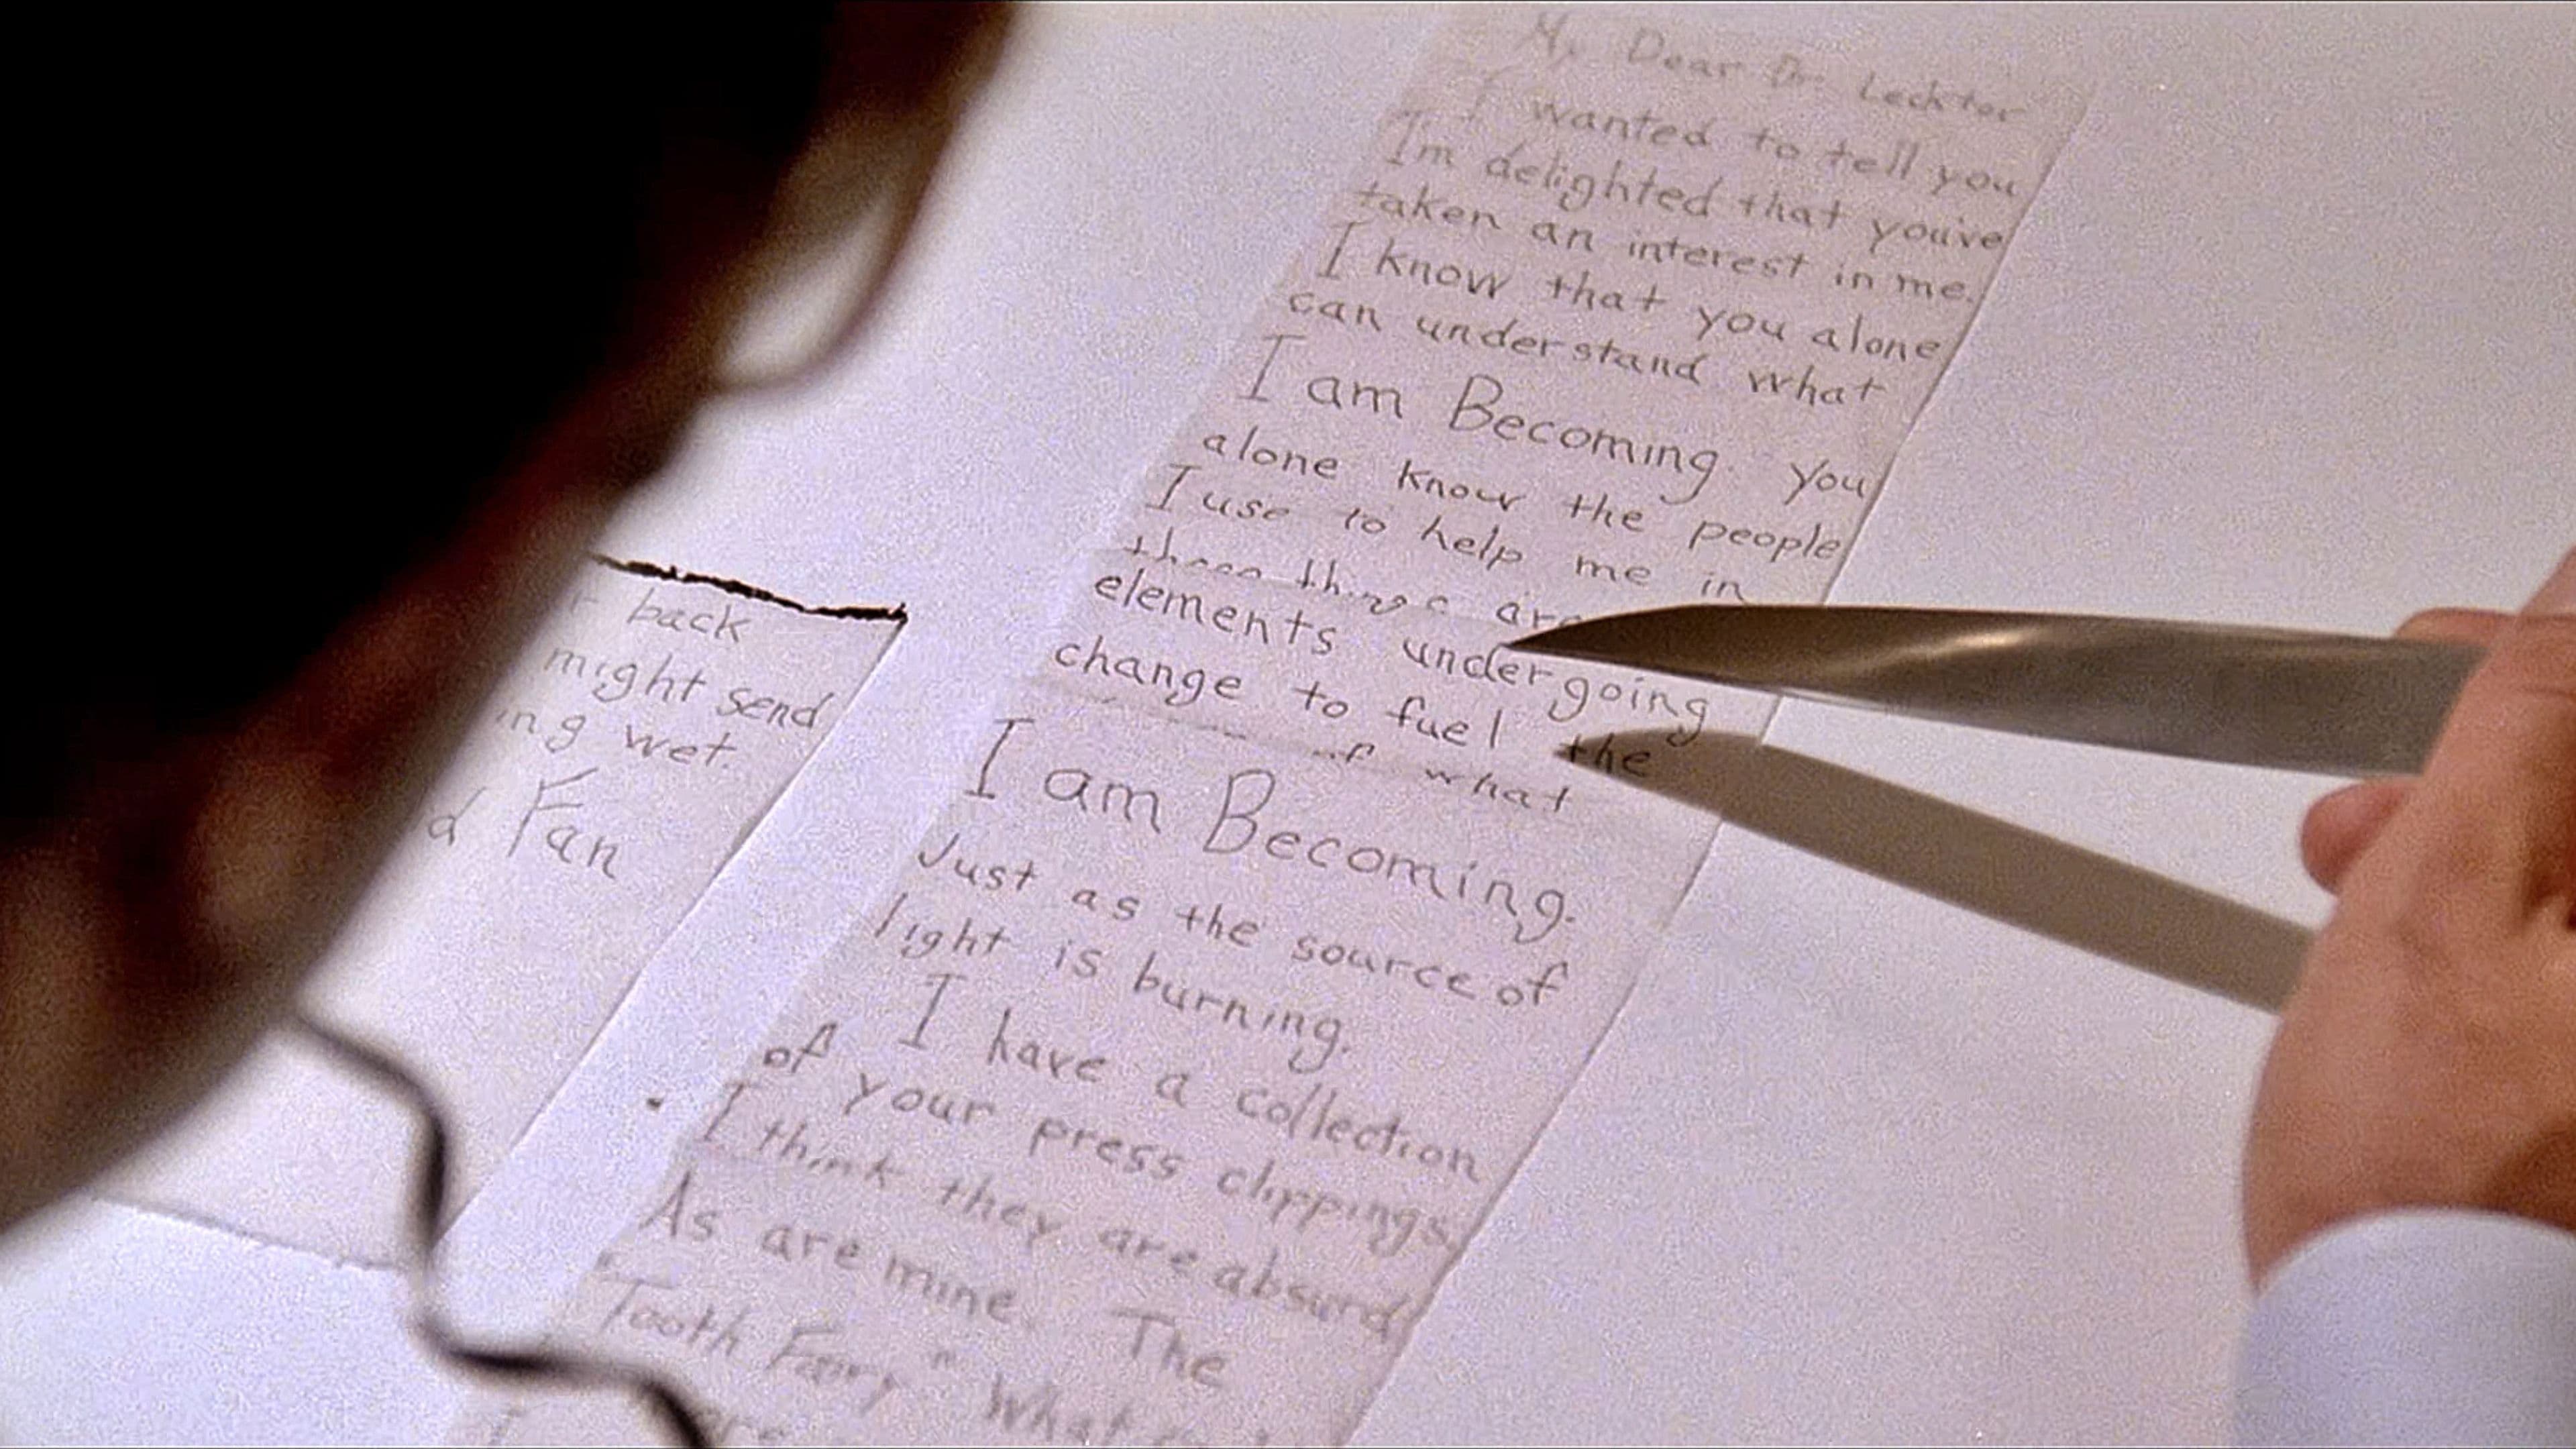 My Dear Dr Lecktor
I wanted to tell you
I'm delighted that you've
taken an interest in me.
I know that you alone
can understand what
I am Becoming. You
alone know the people
I use to help me in
these things are
elements undergoing
change to fuel the
of what
I am Becoming.
Just as the source of
light is burning.
I have a collection
of your press clippings.
I think they are absurd.
As are mine. The
"Tooth Fairy" What
back
might send
ing wet.
d Fan